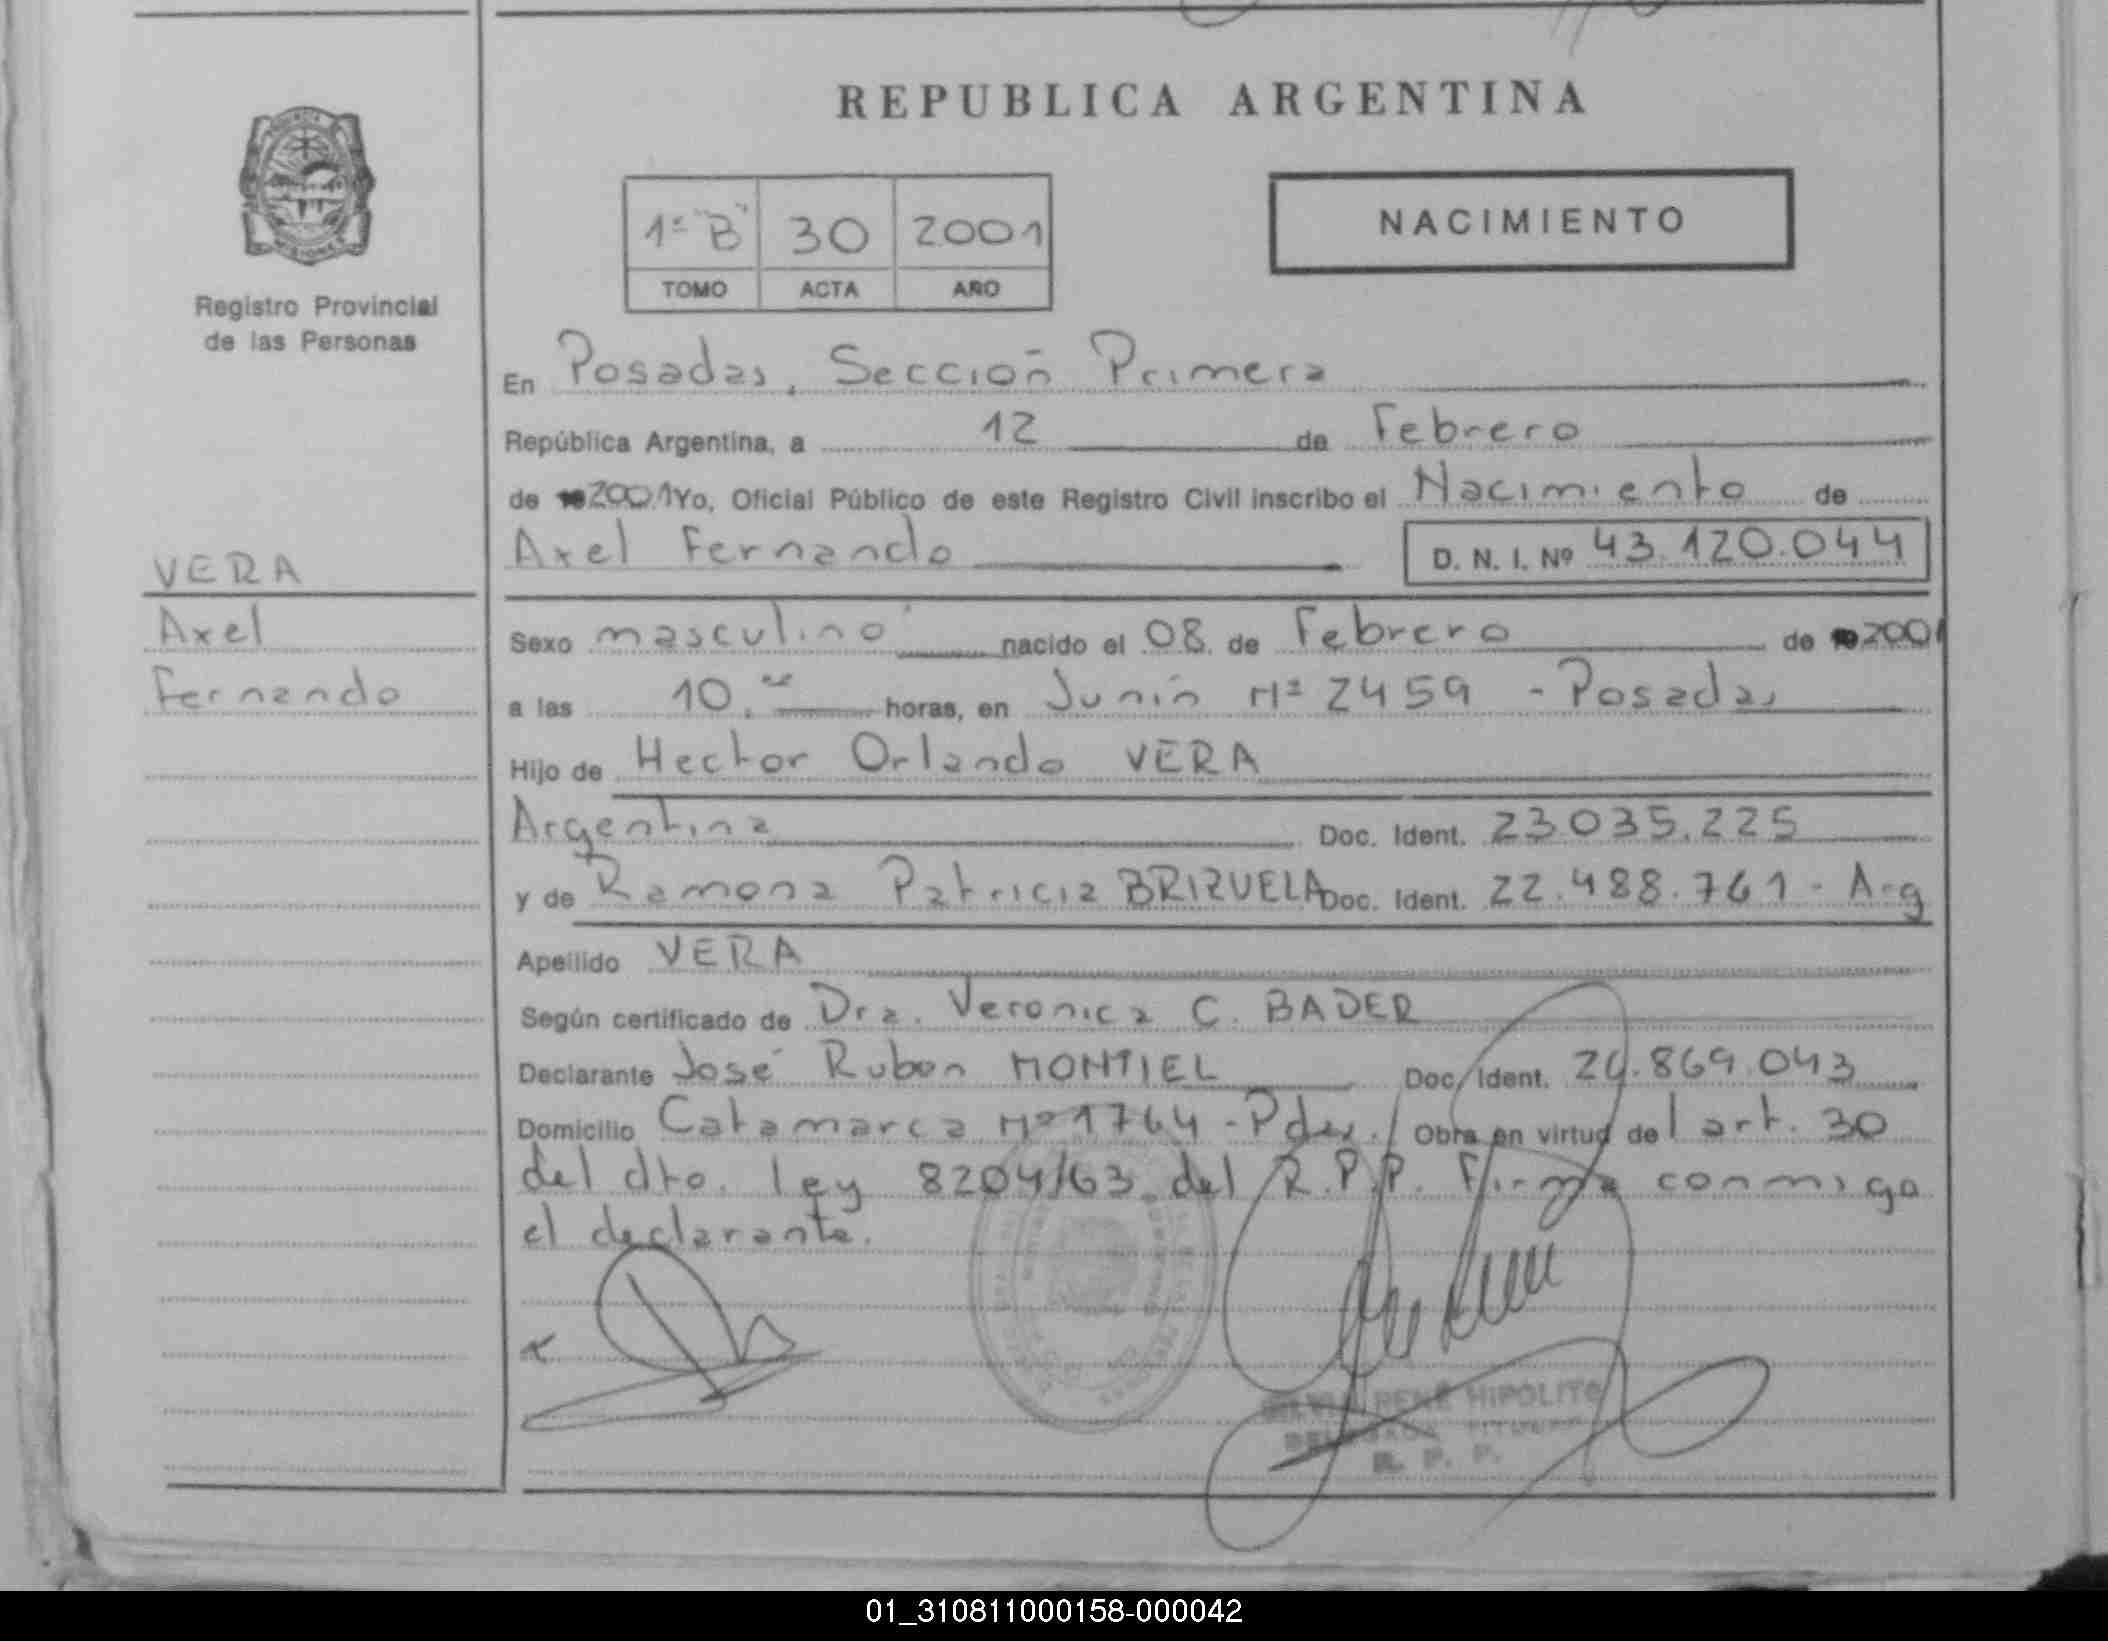 REPUBLICA ARGENTINA
NACIMIENTO
1ª "B" 30 2001
TOMO ACTA AÑO
Registro Provincial
de las Personas
En Posadas, Sección Primera
República Argentina, a 12 de Febrero
de 2001 Yo, Oficial Público de este Registro Civil inscribo el Nacimiento de
Axel Fernando D. N. I. Nº 43.120.044
VERA
Axel
Fernando
Sexo masculino nacido el 08 de Febrero de 2001
a las 10. horas, en Junín Nº 2459 - Posadas
Hijo de Hector Orlando VERA
Argentina Doc. Ident. 23.035.225
y de Ramona Patricia BRIZUELA Doc. Ident. 22.488.761 - Arg
Apellido VERA
Según certificado de Dra. Veronica C. BADER
Declarante José Ruben MONTIEL Doc. Ident. .869.043
Domicilio Catamarca Nº 1764 - Pdas. Obra en virtud del art. 30
del dto. ley 8204/63 del R.P.P. Firma conmigo
el declarante.
RENÉ HIPÓLITO
R. P. P.
01_310811000158-000042